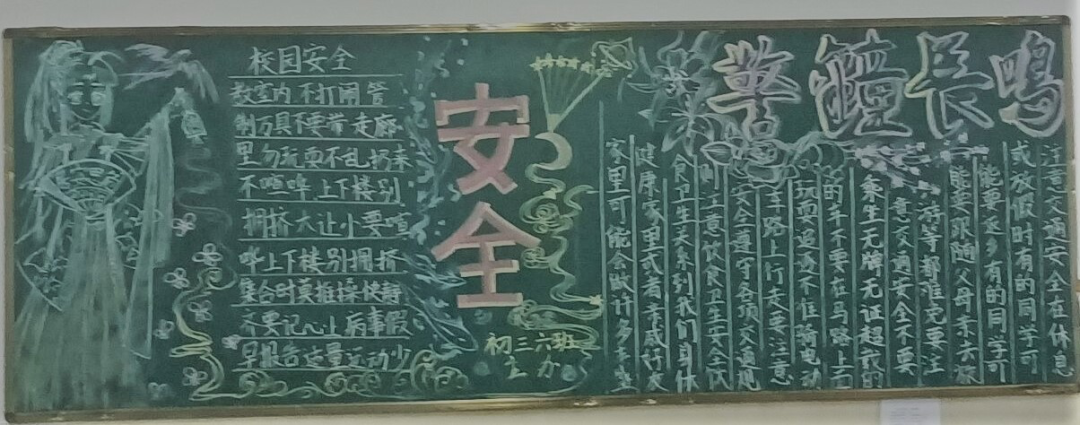 校园安全
教室内不打闹管
制刀具不要带走廊
里勿玩耍不乱扔果
不喧哗上下楼别
拥挤大让小要喧
哗上下楼别拥挤
集合时莫推操快静
齐要记心上病事假
早报告适量运动少
安全
初三六班
主办
警钟长鸣
注意交通安全在休息
或放假时有的同学可
能要返乡有的同学可
能要跟随父母亲去旅
游等都难免要注
意交通安全不要
乘坐无牌无证超载的
的车不要在马路上面
玩耍追逐不准骑电动
车路上行走要注意
安全遵守各项交通规
则注意饮食卫生安全饮
食卫生关系到我们身体
健康家里或者亲戚好友
家里可能会做许多